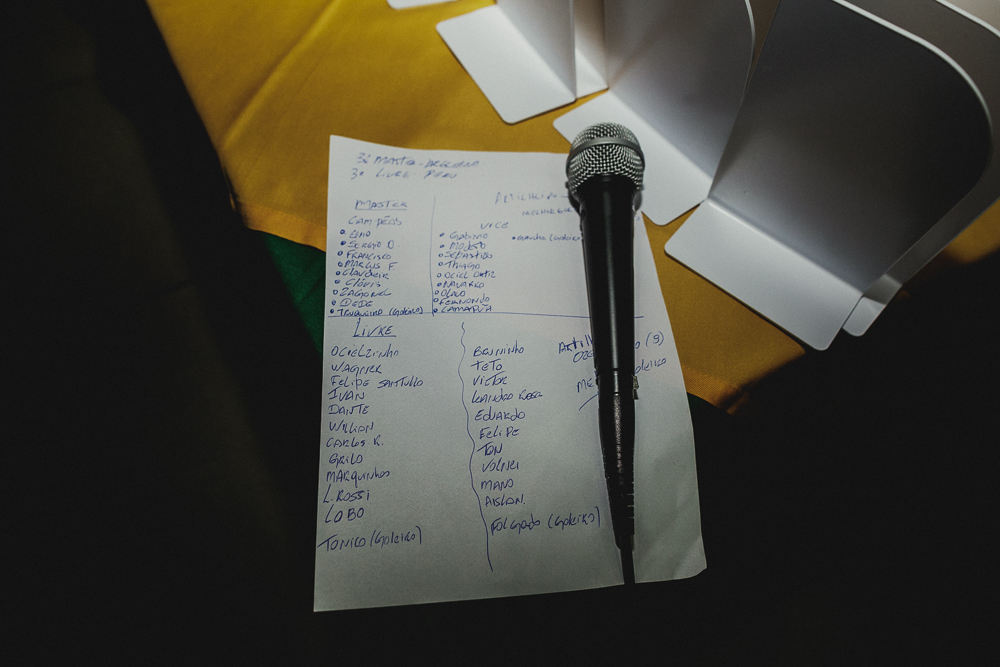 3º MASTER -
3º LIVRE - PERU
MASTER
CAMPEÕS
• SERGIO O.
• FRANCISCO
• MARCUS F.
• CLAUDECIR
• CLÓVIS
• ZAGONEL
• DEDE
• TRUQUEIRO (GOLEIRO)
ARTILHEIRO -
MELHOR
VICE
• GABINO
• MODESTO
• SEBASTIÃO
• THIAGO
• OCIEL ORTIZ
• NAVARRO
• OLAVO
• FERNANDO
• CAMARINHA
(GOLEIRO
LIVRE
OCIELZINHO
WAGNER
FELIPE SANTULLO
IVAN
DANTE
WILLIAN
CARLOS R.
GRILO
MARQUINHOS
L. ROSSI
LOBO
TONICO (GOLEIRO)
BRUNINHO
TETO
VICTOR
LEANDRO ROSA
EDUARDO
FELIPE
TON
VOLNEI
MANO
AISLAN.
FOLGADO (GOLEIRO)
ARTIL (9)
ME OLEIRO